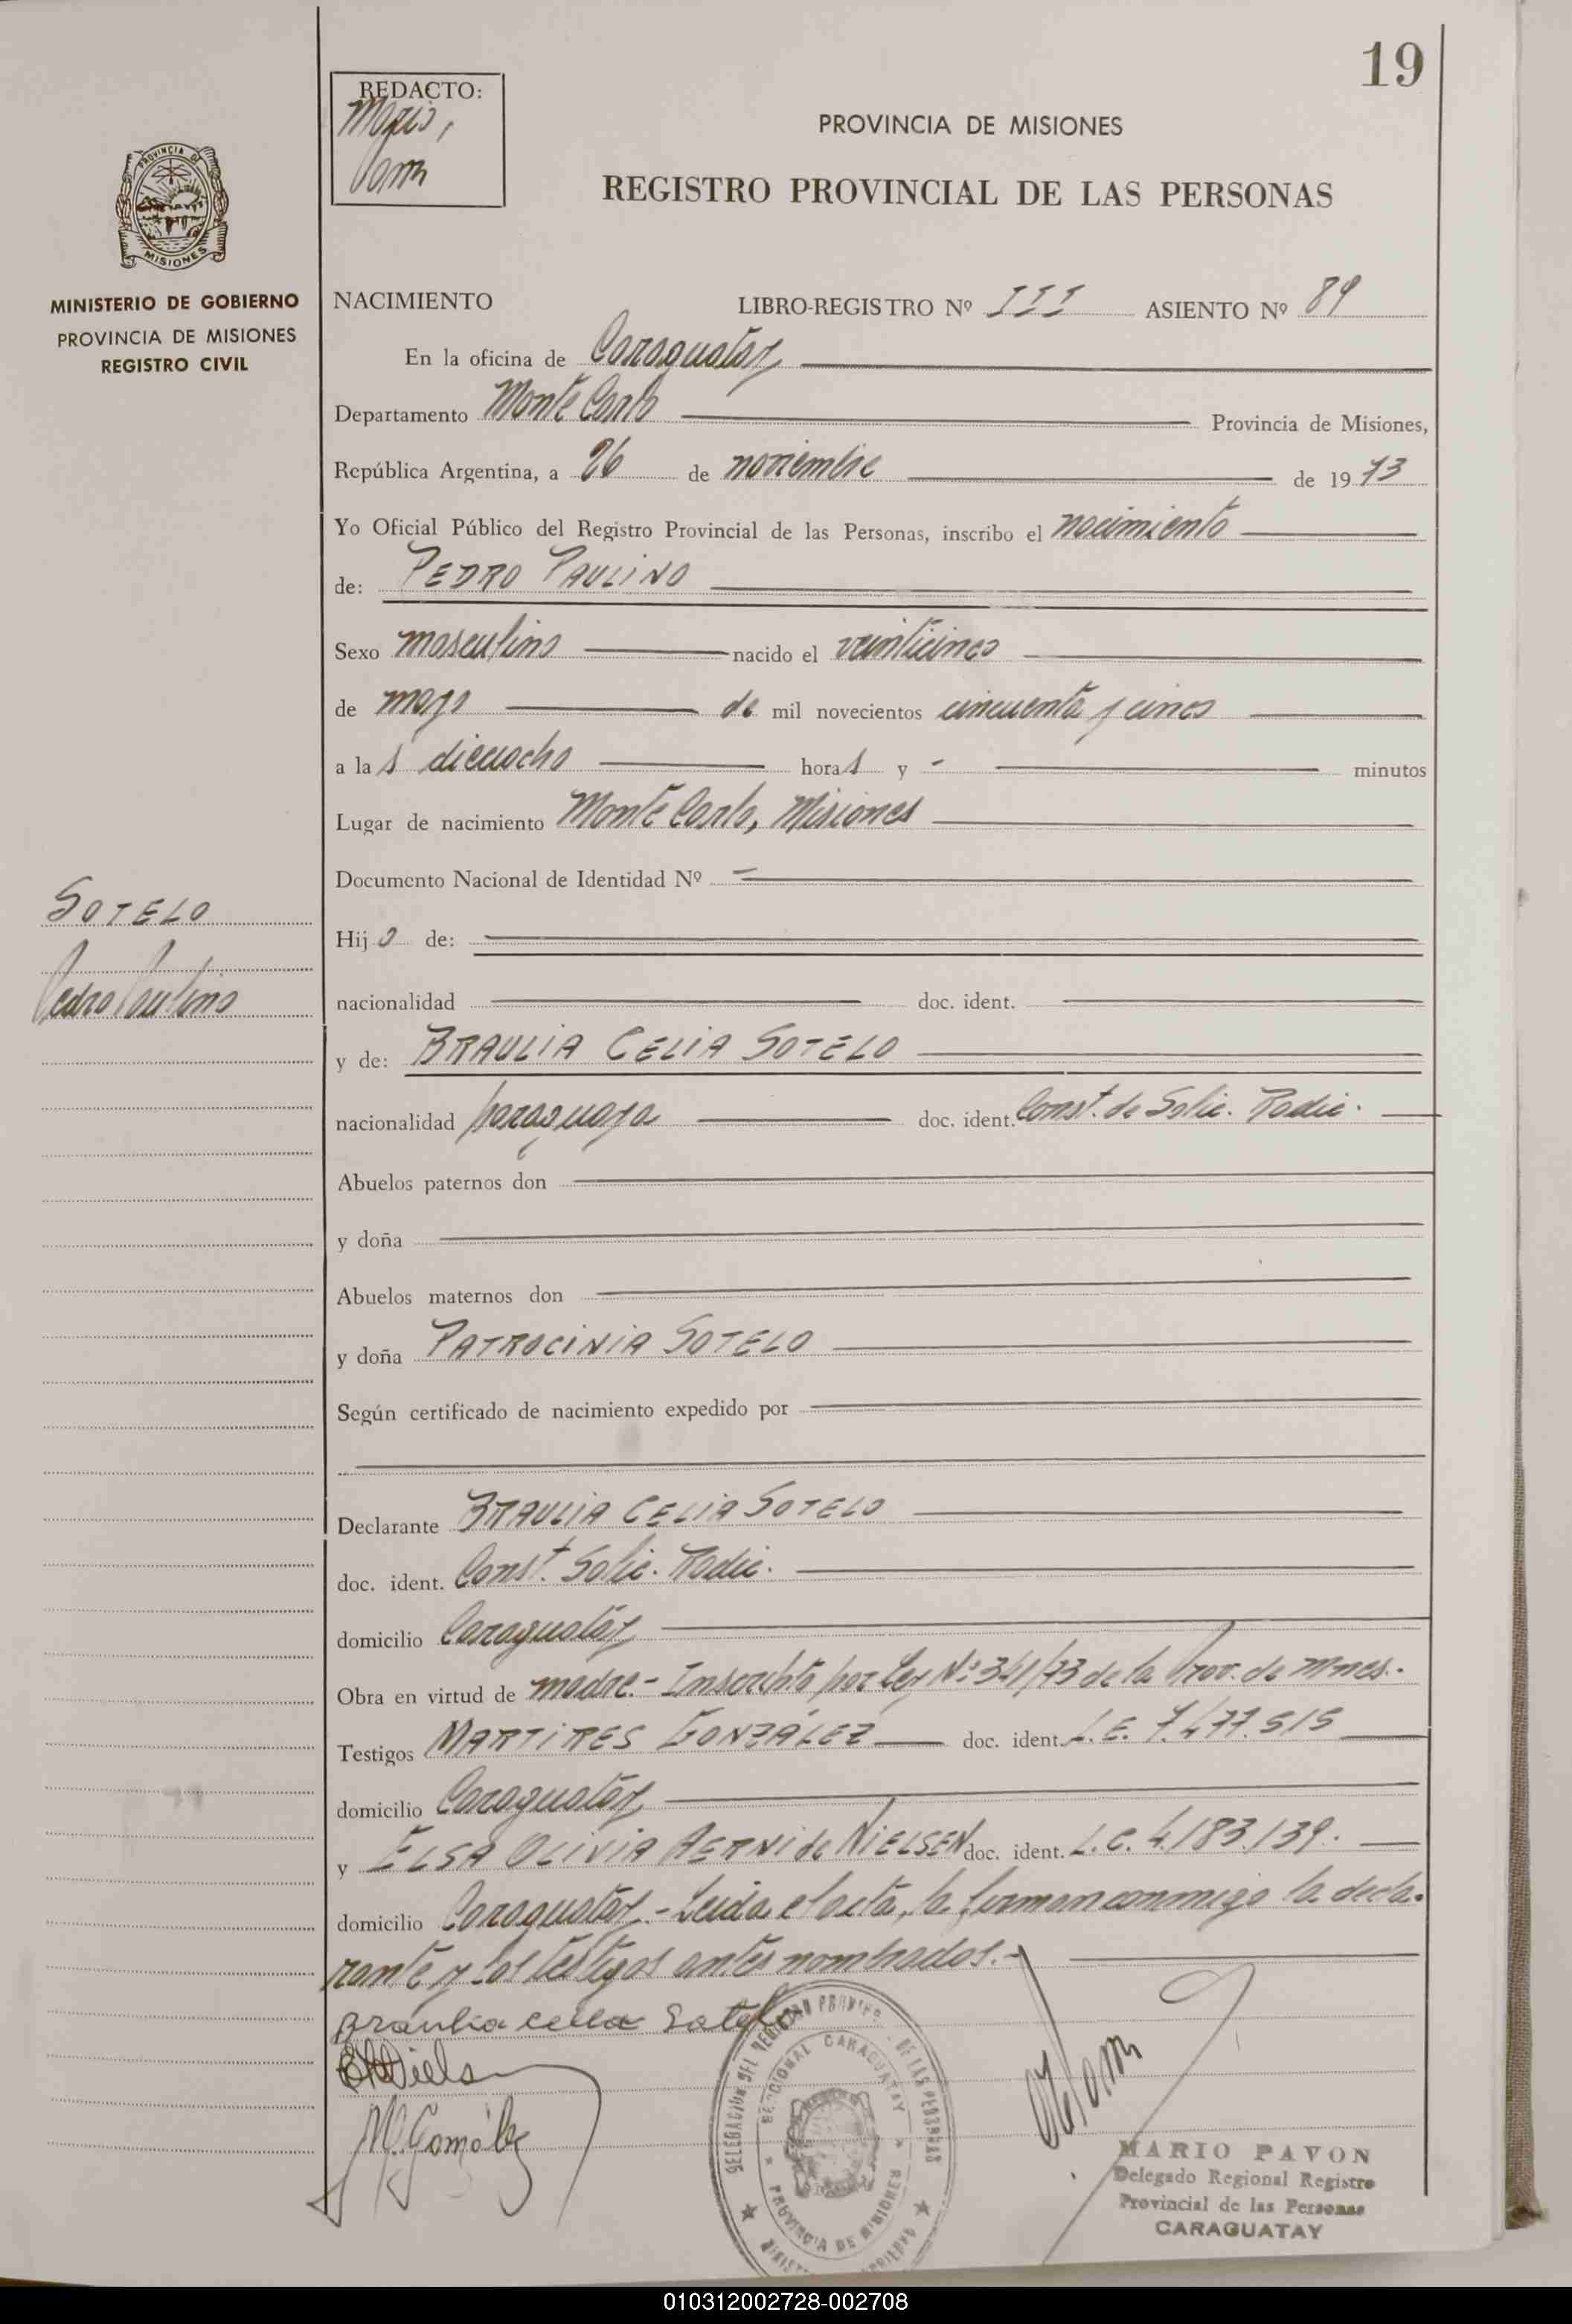 19
REDACTO:
Mario,
Pavon
PROVINCIA DE MISIONES
REGISTRO PROVINCIAL DE LAS PERSONAS
PROVINCIA DE
MISIONES
MINISTERIO DE GOBIERNO
PROVINCIA DE MISIONES
REGISTRO CIVIL
NACIMIENTO LIBRO-REGISTRO Nº III ASIENTO Nº 89
En la oficina de Caraguatay
Departamento Monte Carlo Provincia de Misiones,
República Argentina, a 26 de noviembre de 1973
Yo Oficial Público del Registro Provincial de las Personas, inscribo el nacimiento
de: PEDRO PAULINO
Sexo masculino nacido el veinticinco
de mayo de mil novecientos cincuenta y cinco
a las dieciocho horas y - minutos
Lugar de nacimiento Monte Carlo, Misiones
Documento Nacional de Identidad Nº -
SOTELO
Pedro Paulino
Hijo de:
nacionalidad doc. ident.
y de: BRAULIA CELIA SOTELO
nacionalidad paraguaya doc. ident. Const. de Solic. Radic.
Abuelos paternos don
y doña
Abuelos maternos don
y doña PATROCINIA SOTELO
Según certificado de nacimiento expedido por
Declarante BRAULIA CELIA SOTELO
doc. ident. Const. Solic. Radic.
domicilio Caraguatay
Obra en virtud de madre.- Inscripto por Ley Nº 341/73 de la Prov. de Mnes.-
Testigos MARTIRES GONZÁLEZ doc. ident. L.E. 7.477.515
domicilio Caraguatay
y ELSA OLIVIA AERNI de NIELSEN doc. ident. L.C. 4.183.139.
domicilio Caraguatay.- Leida el acta, la firman conmigo la decla-
rante y los testigos antes nombrados.-
Braulia celia Sotelo
ENiels
M. Gomález
DELEGACION DEL REGISTRO PROVINC. DE LAS PERSONAS
SECCIONAL CARAGUATAY
PROVINCIA DE MISIONES
MARIO PAVON
Delegado Regional Registro
Provincial de las Personas
CARAGUATAY
010312002728-002708